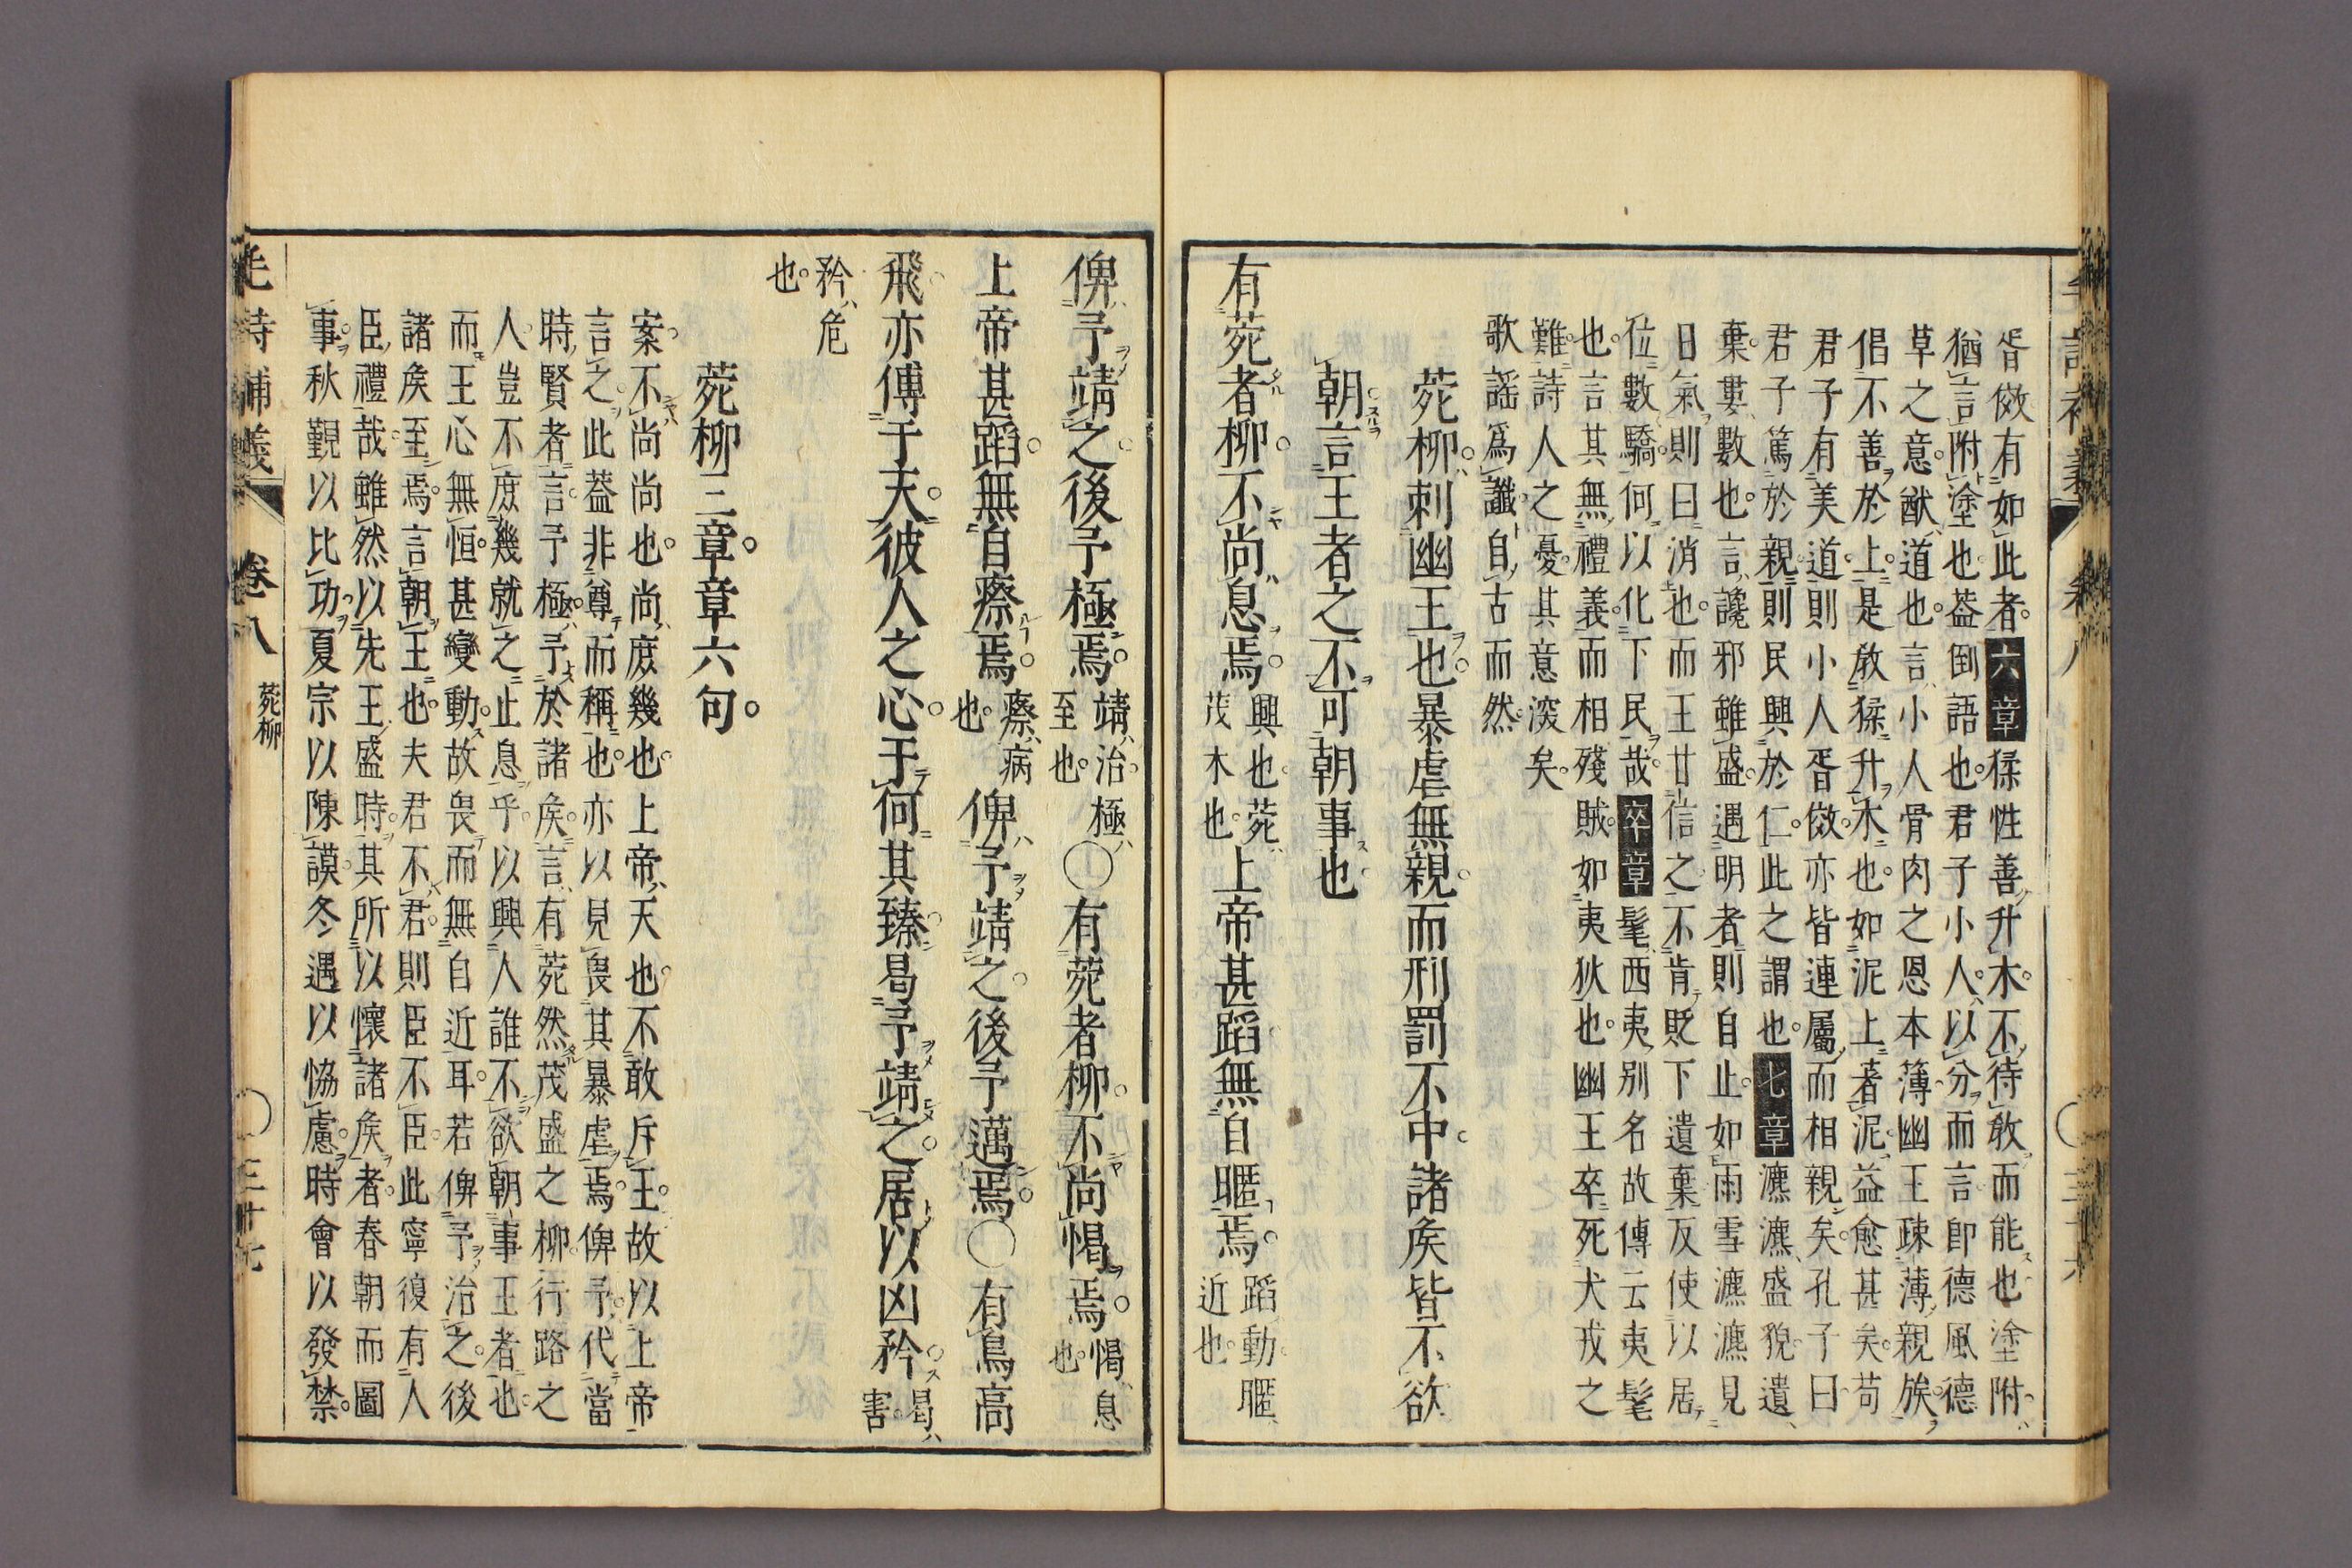 胥傚有如此者六章猱性善升木不待教而能也塗附
猶言附塗也葢倒語也君子小人以分而言即德風德
草之意猷道也言小人骨肉之恩本薄幽王疎薄親族
倡不善於上是教猱升木也如泥上著泥益愈甚矣苟
君子有美道則小人胥傚亦皆連屬而相親矣孔子曰
君子篤於親則民興於仁此之謂也七章瀌瀌盛貌遺
棄婁數也言讒邪雖盛遇明者則自止如雨雪瀌瀌見
日氣則曰消也而王甘信之不肯貶下遺棄反使以居
位數驕何以化下民哉卒章髦西夷別名故傳云夷髦
也言其無禮義而相殘賊如夷狄也幽王卒死犬戎之
難詩人之憂其意深矣
歌謠爲讖自古而然
菀柳刺幽王也暴虐無親而刑罰不中諸矦皆不欲
朝言王者之不可朝事也
有菀者柳不尚息焉興也菀茂木也上帝甚蹈無自暱焉蹈動暱近也
俾予靖之後予極焉靖治極至也○有菀者柳不尚愒焉愒息也
上帝甚蹈無自瘵焉瘵病也俾予靖之後予邁焉○有鳥高
飛亦傅于天彼人之心于何其臻曷予靖之居以凶矜曷害
矜危也
菀柳三章章六句
案不尚尚也尚庶幾也上帝天也不敢斥王故以上帝
言之此葢非尊而稱也亦以見畏其暴虐焉俾予代當
時賢者言予極予於諸矦言有菀然茂盛之柳行路之
人豈不庶幾就之止息乎以興人誰不欲朝事王者也
而王心無恒甚變動故畏而無自近耳若俾予治之後
諸矦至焉言朝王也夫君不君則臣不臣此寧復有人
臣禮哉雖然以先王盛時其所以懷諸矦者春朝而圖
事秋覲以比功夏宗以陳謨冬遇以恊慮時會以發禁
毛詩補義
卷八
菀柳